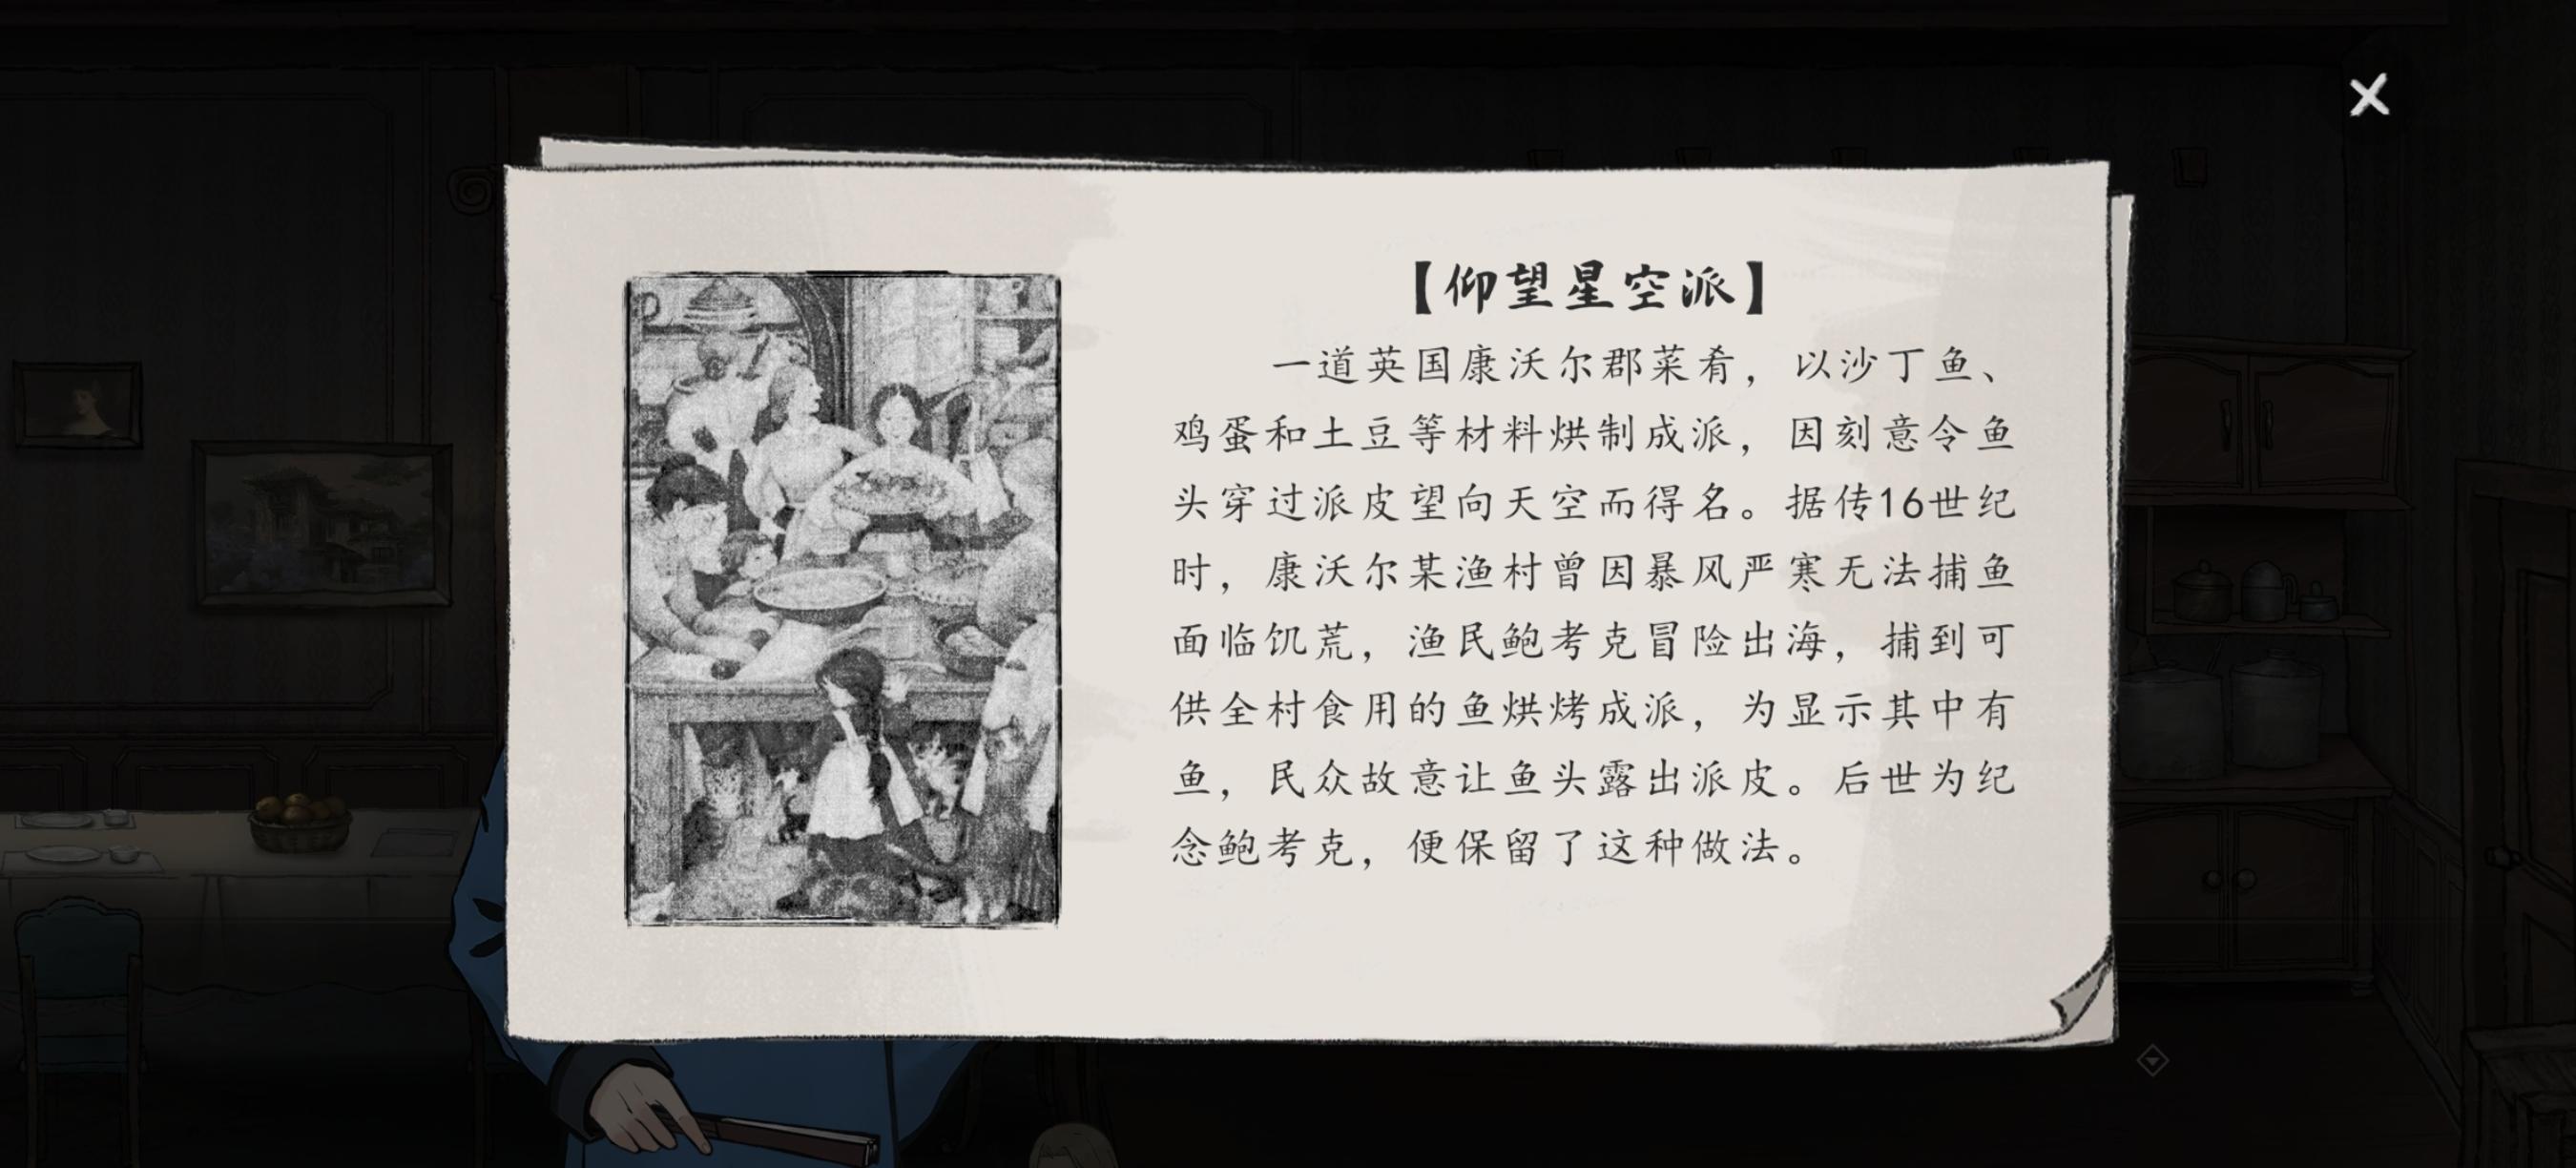 【仰望星空派】
一道英国康沃尔郡菜肴，以沙丁鱼、
鸡蛋和土豆等材料烘制成派，因刻意令鱼
头穿过派皮望向天空而得名。据传16世纪
时，康沃尔某渔村曾因暴风严寒无法捕鱼
面临饥荒，渔民鲍考克冒险出海，捕到可
供全村食用的鱼烘烤成派，为显示其中有
鱼，民众故意让鱼头露出派皮。后世为纪
念鲍考克，便保留了这种做法。